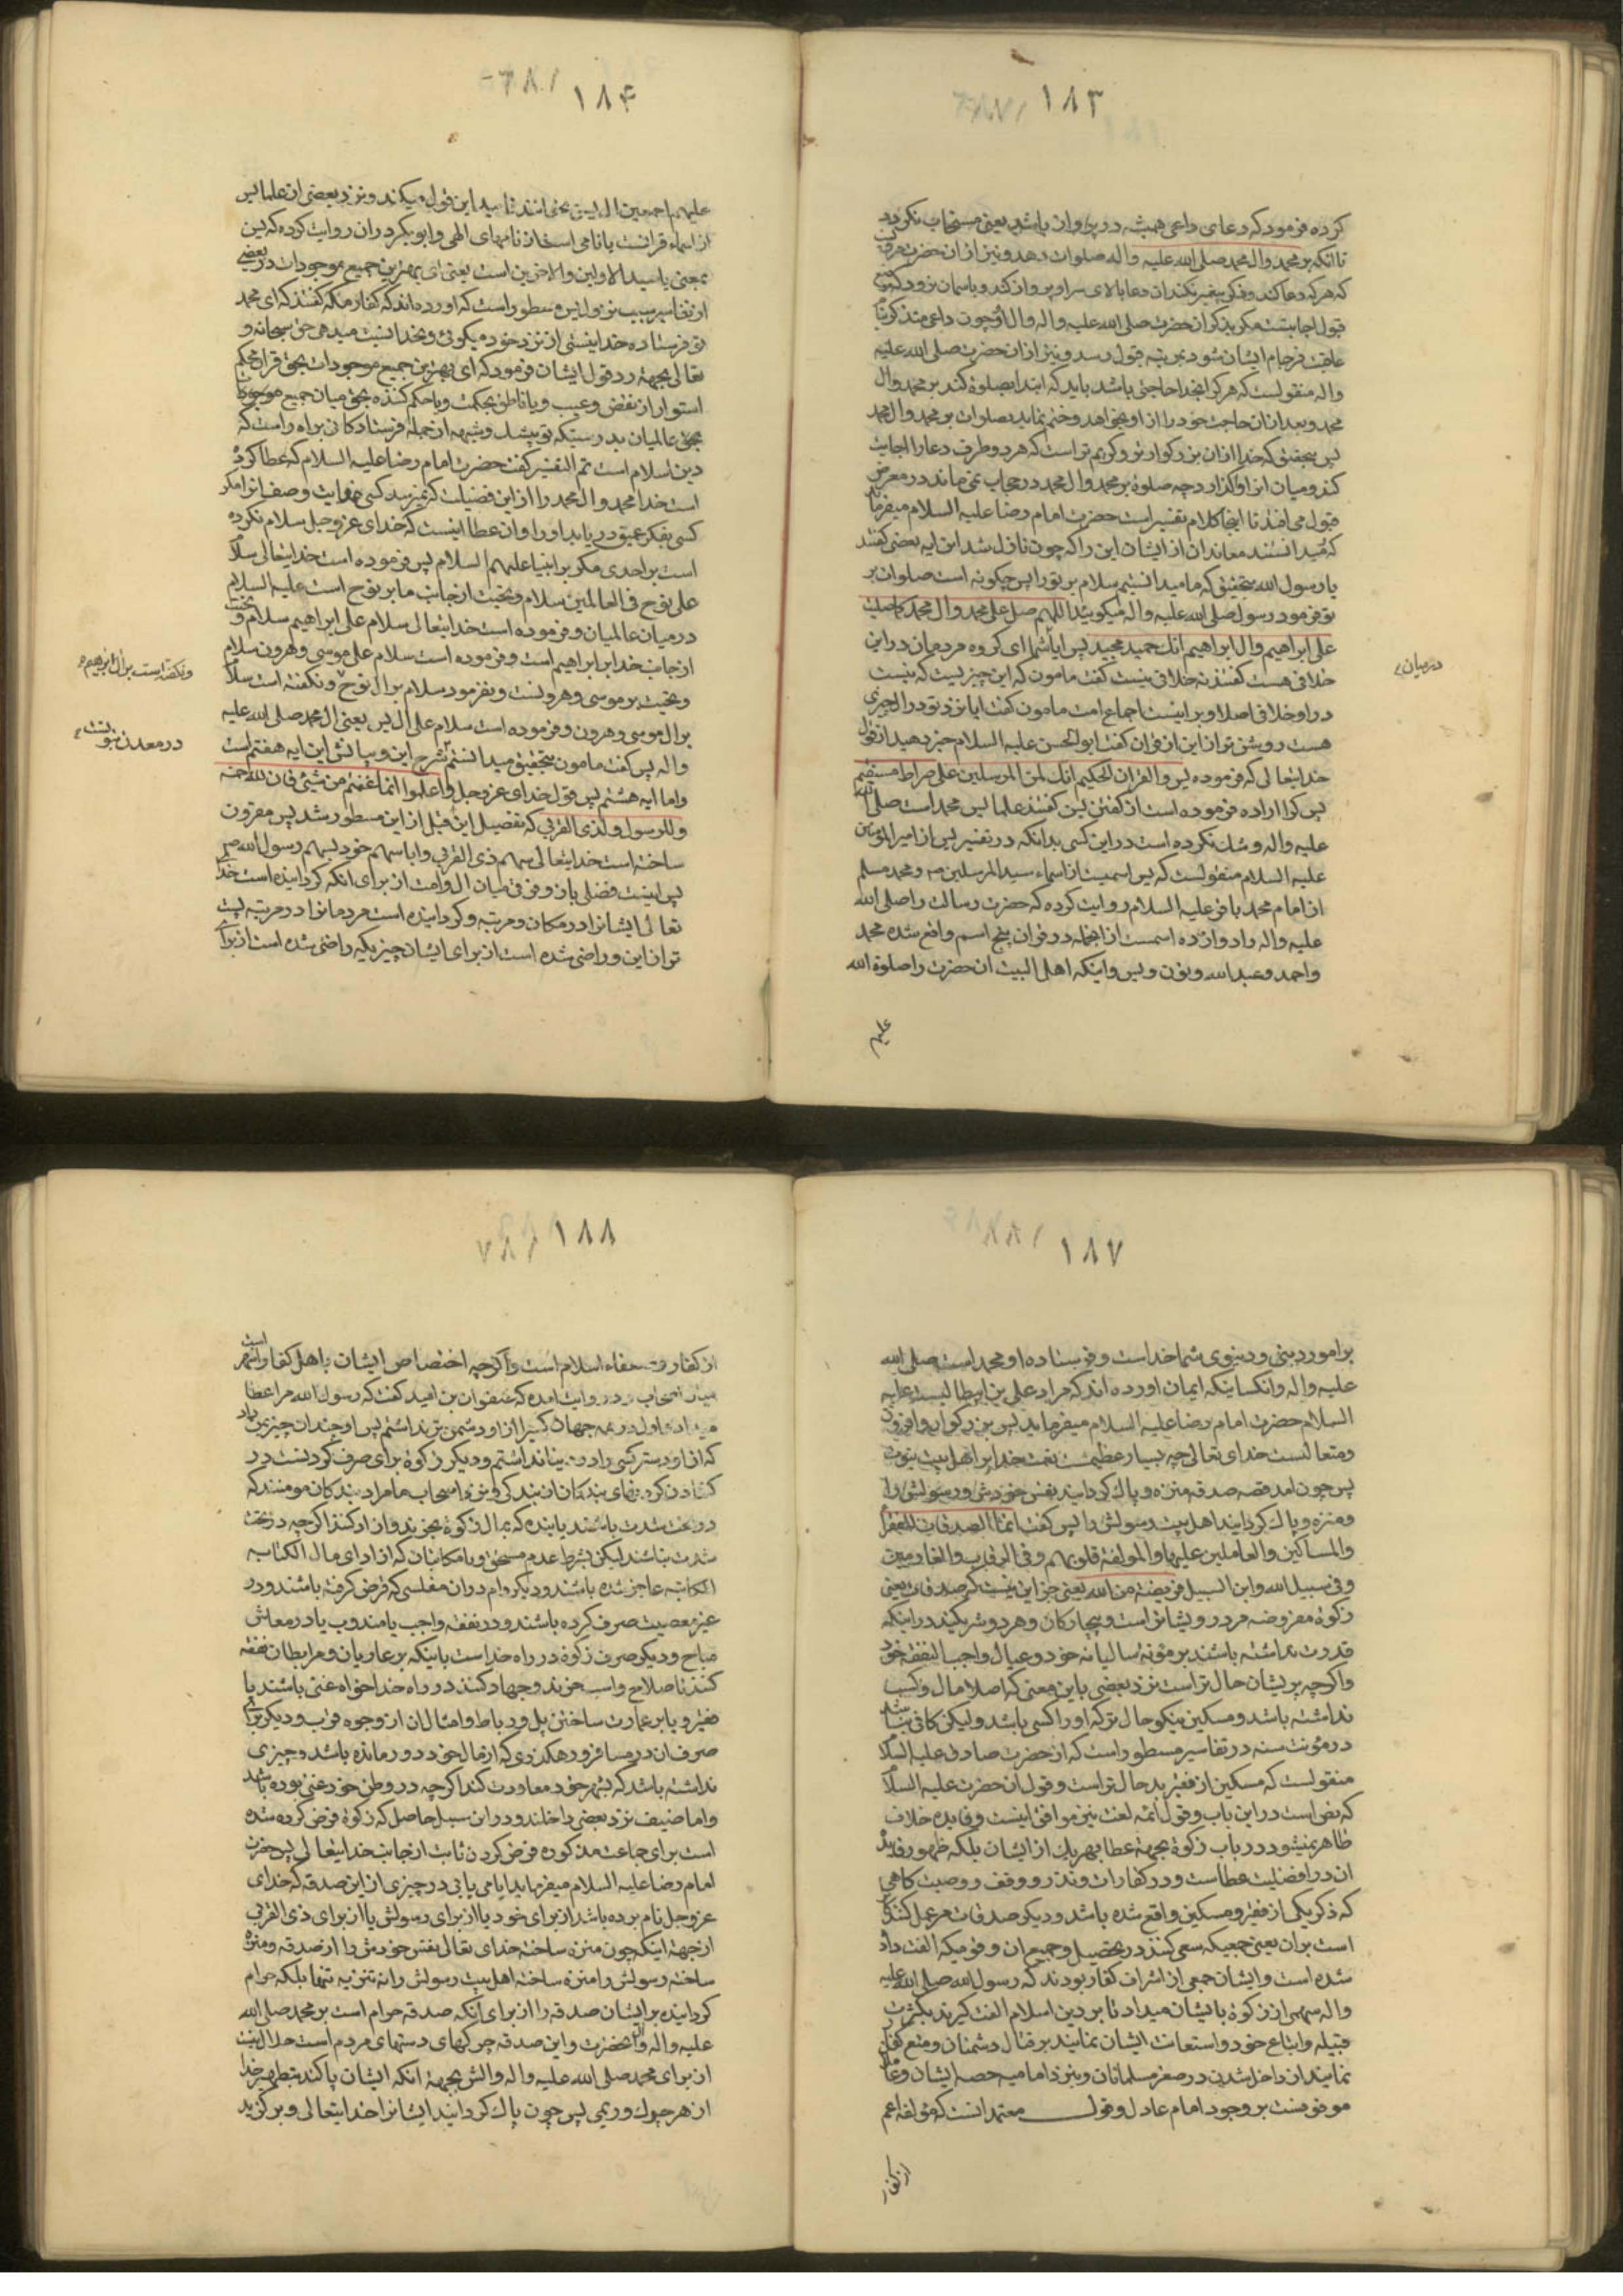 ۱۸۳
کرده فرمود که دعای داعی همیشه در پرواز باشد یعنی مستجاب نکردد
تا آنکه بر محمد وال محمد صلی الله علیه واله صلوات دهد و نیز از ان حضرت
که هر که دعا کند و ذکر پیغمبر نکند ان دعا بالای سر او پرواز کند و باسمان نرود که
قبول اجابتست مکر بذکر ان حضرت صلی الله علیه واله وال او چون داعی متذکر
عاقبت فرجام ایشان شود بمرتبه قبول رسد و نیز از ان حضرت صلی الله علیه
واله منقولست که هر کرا بخدا حاجتی باشد باید که ابتدا بصلوة کند بر محمد وال
محمد و بعد از ان حاجت خود را از او بخواهد و ختم نماید بصلوات بر محمد وال محمد
پس بتحقیق که خدا از ان بزرکوارتر و کریم تر است که هر دو طرف دعا را اجابت
کند و میان انرا واکذارد چه صلوة بر محمد وال محمد در حجاب نمی ماند در معرض
قبول می افتد تا اینجا کلام تفسیر است حضرت امام رضا علیه السلام میفرماید
که میدانستند معاندان از ایشان این را که چون نازل شد این ایه بعضی کفتند
یا رسول الله بتحقیق که ما میدانستیم سلام بر تو را پس چکونه است صلوات بر
تو فرمود رسول صلی الله علیه واله میکویید اللهم صل علی محمد وال محمد کما صلیت
علی ابراهیم وال ابراهیم انک حمید مجید پس ایا شما ای کروه مردمان در این
در میان
خلافی هست کفتند نه خلافی نیست کفت مامون که این چیزیست که نیست
در او خلافی اصلا و بر اینست اجماع امت مامون کفت ایا نزد تو در ال چیزی
هست روشن تر از این از قران کفت ابو الحسن علیه السلام خبر دهید از قول
خدایتعالی که فرموده یس والقران الحکیم انک لمن المرسلین علی صراط مستقیم
پس کرا اراده فرموده است از کفتن یس کفتند علما یس محمد است صلی الله
علیه واله و شک نکرده است در این کسی بدانکه در تفسیر یس از امیر المؤمنین
علیه السلام منقولست که یس اسمیست از اسماء سید المرسلین ص و محمد مسلم
از امام محمد باقر علیه السلام روایت کرده که حضرت رسالت را صلی الله
علیه واله دوازده اسمست از انجمله در قران پنج اسم واقع شده محمد
واحمد وعبدالله ونون ویس واینکه اهل البیت ان حضرت را صلوة الله
علیهم
۱۸۴
علیهم اجمعین ال یس می خوانند تایید این قول میکند و نزد بعضی از علما یس
از اسماء قرانست یا نامی است از نامهای الهی و ابو بکر دران روایت کرده که یس
بمعنی یا سید الاولین والاخرین است یعنی ای بهترین جمیع موجودات در بعضی
از تفاسیر سبب نزول یس مسطور است که اورده اند که کفار مکه کفتند که ای محمد
تو فرستاده خدا نیستی از نزد خود میکویی و بخدا نسبت میدهی حق سبحانه و
تعالی بجهة رد قول ایشان فرمود که ای بهترین جمیع موجودات بحق قران محکم
استوار از نقض و عیب و یا ناطق بحکمت و یا حکم کننده بحق میان جمیع
عالمیان بدرستیکه تو بیشک و شبهه از جمله فرستادکانی بر راه راست که
دین اسلام است تم التفسیر کفت حضرت امام رضا علیه السلام که عطا کرده
است خدا محمد وال محمد را از این فضیلت که نمیرسد کسی بنهایت وصف انرا مکر
کسی بفکر عمیق دریابد او را و ان عطا اینست که خدای عز وجل سلام نکرده
است بر احدی مکر بر انبیا علیهم السلام پس فرموده است خدایتعالی سلام
علی نوح فی العالمین سلام و تحیت از جانب ما بر نوح است علیه السلام
در میان عالمیان و فرموده است خدایتعالی سلام علی ابراهیم سلام و تحیت
از جانب خدا بر ابراهیم است و فرموده است سلام علی موسی وهرون سلام
و تحیت بر موسی و هرونست و نفرمود سلام بر ال نوح و نکفته است سلام
ونکفته است بر ال ابراهیم
بر ال موسی وهرون و فرموده است سلام علی ال یس یعنی ال محمد صلی الله علیه
واله پس کفت مامون بتحقیق میدانستم شرح این و بیانش این ایه هفتم است
در معدن نبوتست
واما ایه هشتم پس قول خدای عز وجل واعلموا انما غنمتم من شیئ فان لله خمسه
وللرسول ولذی القربی که تفصیل این قبل از این مسطور شد پس مقرون
ساخته است خدایتعالی سهم ذی القربی را با سهم خود بسهم رسول الله ص
پس اینست فضلی باز و فرق میان ال وامت از برای انکه کردانیده است خدای
تعالی ایشانرا در مکان و مرتبه و کردانیده است مردمانرا در مرتبه پست
تر از این و راضی شده است از برای ایشان چیزیکه راضی شده است از برای
۱۸۷
بر امور دینی و دنیوی شما خداست و فرستاده او محمد است صلی الله
علیه واله وانکسانیکه ایمان اورده اند که مراد علی بن ابیطالبست علیه
السلام حضرت امام رضا علیه السلام میفرماید پس بزرکوار و افزون
ومتعالست خدای تعالی چه بسیار عظیمست نعمت خدا بر اهل بیت نبوت
پس چون امد قصه صدقه منزه و پاک کردانید نفس خودش و رسولش را
ومنزه و پاک کردانید اهل بیت رسولش را پس کفت انما الصدقات للفقراء
والمساکین والعاملین علیها والمولفة قلوبهم وفی الرقاب والغارمین
وفی سبیل الله وابن السبیل فریضة من الله یعنی جز این نیست که صدقات یعنی
زکوة مفروضه مر درویشانراست و بیچارکان و هر دو شریکند در اینکه
قدرت نداشته باشند بر مؤنه سالیانه خود و عیال واجب النفقه خود
واکرچه پریشان حال تر است نزد بعضی باین معنی که اصلا مال و کسب
نداشته باشد و مسکین نیکو حال تر که او را کسی باشد و لیکن کافی نباشد
در مؤنت سنه در تفاسیر مسطور است که از حضرت صادق علیه السلام
منقولست که مسکین از فقیر بد حال تر است و قول ان حضرت علیه السلام
که نص است در این باب و قول ائمه لغت نیز موافق اینست و فایده خلاف
ظاهر نمیشود در باب زکوة بجهة عطا بهر یک از ایشان بلکه ظهور فایده
ان در افضلیت عطاست و در کفارات و نذر و وقف و وصیت کاهی
که ذکر یکی از فقیر و مسکین واقع شده باشد و دیکر صدقات مر عمل کنندکان
است بران یعنی جمعیکه سعی کنند در تحصیل و جمع ان و قومیکه الفت داده
شده است و ایشان جمعی از اشراف کفار بودند که رسول الله صلی الله علیه
واله سهمی از زکوة بایشان میداد تا بر دین اسلام الفت کیرند بکثرت
قبیله و اتباع خود و استعانت ایشان نمایند بر قتال دشمنان و منع کفار
نمایند از داخل شدن در صغر مسلمانان و نیز نزد امامیه حصه ایشان
موقوفست بر وجود امام عادل وقول معتمد انست که مؤلفه اعم
از کفار
۱۸۸
از کفار و ضعفاء اسلام است واکرچه اختصاص ایشان باهل کفار اشهر است
میان اصحاب و در روایت امده که صفوان بن امیه کفت که رسول الله مرا عطا
میداد و اول در همه جهان کسیرا از او دشمن تر نداشتم پس او چندان چیز بمن داد
که از او دوستر کسی را در دنیا نداشتم و دیکر زکوة برای صرف کردنست در
کشادن کردنهای بندکان از بندکی و نزد اصحاب ما مراد بندکان مومنند که
در تحت شدت باشند یا بنده که بمال زکوة بخرند و ازاد کنند اکرچه در تحت
شدت نباشند لیکن بشرط عدم مستحق و یا مکاتبان که از ادای مال الکتابه
الکتابه عاجز شده باشند و دیکر وام دران مفلسی که قرض کرفته باشند و در
غیر معصیت صرف کرده باشند و در نفقه واجب یا مندوب یا در معاش
مباح و دیکر صرف زکوة در راه خداست باینکه بر غازیان و مرابطان نفقه
کنند تا سلاح و اسب خرند و جهاد کنند در راه خدا خواه غنی باشند یا
فقیر و یا بر عمارت ساختن پل و رباط و امثال ان از وجوه قرب و دیکر برای
صرف ان در مسافر و رهکذری که از مال خود دور مانده باشد و چیزی
نداشته باشد که بشهر خود معاودت کند اکرچه در وطن خود غنی بوده باشد
واما ضیف نزد بعضی داخلند در ابن سبیل حاصل که زکوة فرض کرده شده
است برای جماعت مذکوره فرض کردن ثابت از جانب خدایتعالی پس حضرت
امام رضا علیه السلام میفرماید ایا می یابی در چیزی از این صدقه که خدای
عز وجل نام برده باشد از برای خود یا از برای رسولش یا از برای ذی القربی
از جهة اینکه چون منزه ساخته خدای تعالی نفس خودش را از صدقه و منزه
ساخته رسولش را منزه ساخته اهل بیت رسولش را نه تنزیه تنها بلکه حرام
کردانیده بر ایشان صدقه را از برای انکه صدقه حرام است بر محمد صلی الله
علیه واله وال انحضرت و این صدقه چرکهای دستهای مردم است حلال نیست
از برای محمد صلی الله علیه واله والش بجهة انکه ایشان پاکند بتطهیر خدا
از هر چرک و ریمی پس چون پاک کردانید ایشانرا خدایتعالی و برکزید